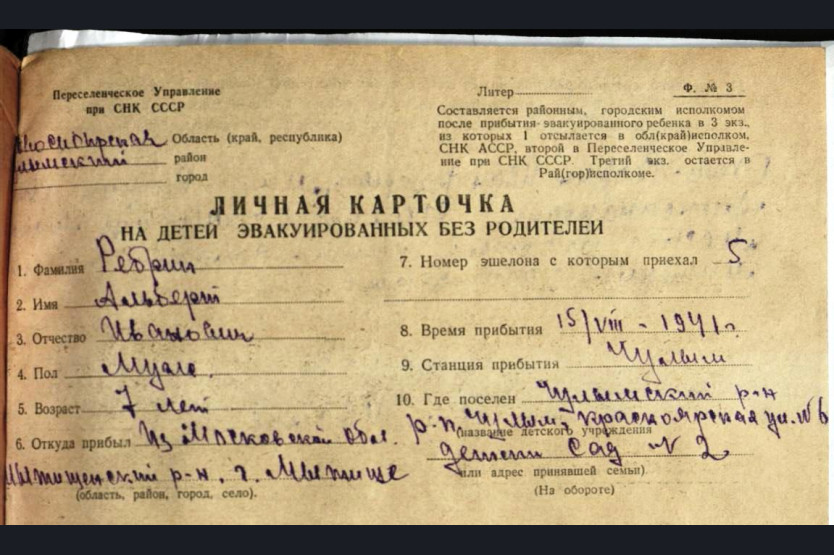 Переселенческое Управление
при СНК СССР
Область (край, республика)
район
город
Литер
Ф. № 3
Составляется районным, городским исполкомом
после прибытия эвакуированного ребенка в 3 экз.,
из которых 1 отсылается в обл(край)исполком,
СНК АССР, второй в Переселенческое Управле-
ние при СНК СССР. Третий экз. остается в
Рай(гор)исполкоме.
ЛИЧНАЯ КАРТОЧКА
НА ДЕТЕЙ ЭВАКУИРОВАННЫХ БЕЗ РОДИТЕЛЕЙ
1. Фамилия Ребрин
2. Имя Альберт
3. Отчество Иванович
4. Пол Муж.
5. Возраст 7 лет
6. Откуда прибыл Из Московской обл.
Мытищенский р-н, г. Мытище
(область, район, город, село).
7. Номер эшелона с которым приехал 5
8. Время прибытия 15/VIII - 1941 г.
9. Станция прибытия Чулым
10. Где поселен Чулымский р-н
р-п Чулым Красноярская ул. № 6
(название детского учреждения
детский сад № 2
или адрес принявшей семьи)
(На обороте)